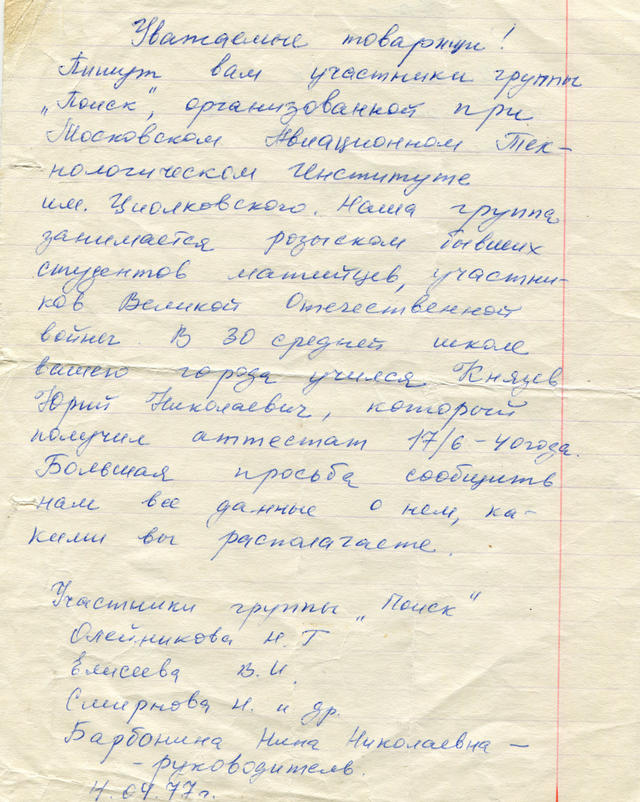 Уважаемые товарищи!
Пишут вам участники группы
„Поиск", организованной при
Московском Авиационном Тех-
нологическом Институте
им. Циолковского. Наша группа
занимается розыском бывших
студентов матийцев, участни-
ков Великой Отечественной
войны. В 30 средней школе
вашего города учился Князев
Юрий Николаевич, который
получил аттестат 17/6-40 года.
Большая просьба сообщить
нам все данные о нем, ка-
кими вы располагаете.
Участники группы „Поиск"
Олейникова Н. Г
Елисеева В.И.
Смирнова Н. и др.
Барбонина Нина Николаевна —
- руководитель.
4.04.77г.